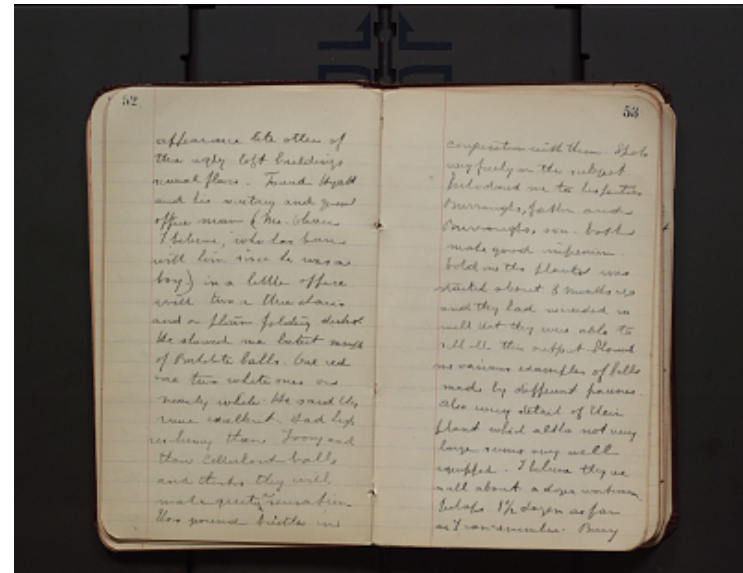 52
appearance like others of
the ugly loft buildings
usual floors. Found Hyatt
and his secretary and general
office man (Mr.
I believe, who has been
with him since he was a
boy) in a little office
with two or three chairs
and a plain folding desk.
He showed me latest
of Bakelite balls. One red
one two white ones or
nearly white. He said they
were excellent. Had high
resiliency than Ivory and
than Celluloid balls
and thinks they will
make great sensation
Has pound
53
competition with them. Spoke
very freely on the subject
Introduced me to his parties
Burroughs, father and
Burroughs, son. both
make good impression.
told me the plant was
started about 8 months ago
and they had succeeded so
well that they were able to
sell all their output. Showed
me various examples of balls
made by different processes.
also every detail of their
plant which altho not very
large seems very well
equipped. I believe they use
all about a dozen workmen
perhaps 1½ dozen as far
as I can remember.